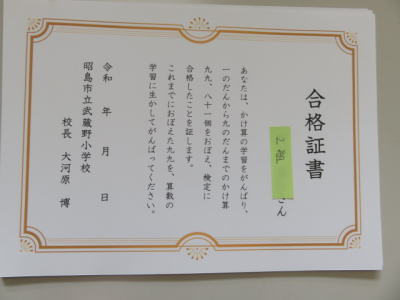 合格証書
2組
さん
あなたは、かけ算の学習をがんばり、
一のだんから九のだんまでのかけ算
九九、八十一個をおぼえ、検定に
合格したことを証します。
これまでにおぼえた九九を、算数の
学習に生かしてがんばってください。
令和　年　月　日
昭島市立武蔵野小学校
校長　大河原　博